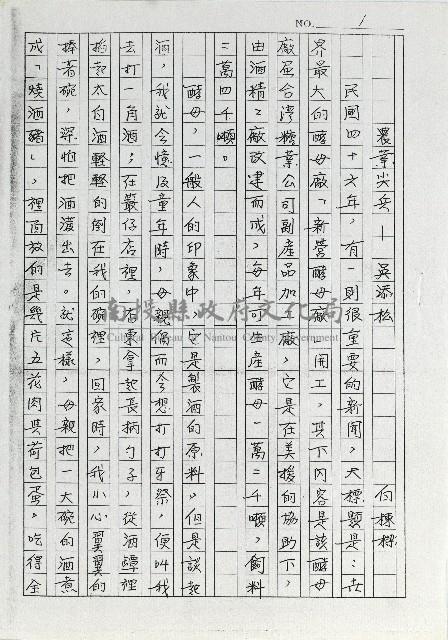 NO. 1
農業尖兵——吳添松　向陳樑
民國四十六年，有一則很重要的新聞，大標題是：世
界最大的酵母廠「新營酵母廠」開工，其下內容是該酵母
廠屬台灣糖業公司副產品加工廠，它是在美援的協助下，
由酒精工廠改建而成，每年可生產酵母一萬二千噸，飼料
二萬四千噸。
酵母，一般人的印象中，它是製酒的原料，但是談起
酒，我就會憶及童年時，母親偶而會想打打牙祭，便叫我
去打一角酒；在簽仔店裡，店東拿起長柄勺子，從酒罈裡
掏起太白酒輕輕的倒在我的碗裡，回家時，我小心翼翼的
捧著碗，深怕把酒潑出去。就這樣，母親把一大碗的酒煮
成「燒酒雞」，裡面放的是幾片五花肉與荷包蛋，吃得全
南投縣政府文化局
Cultural Bureau of Nantou County Government